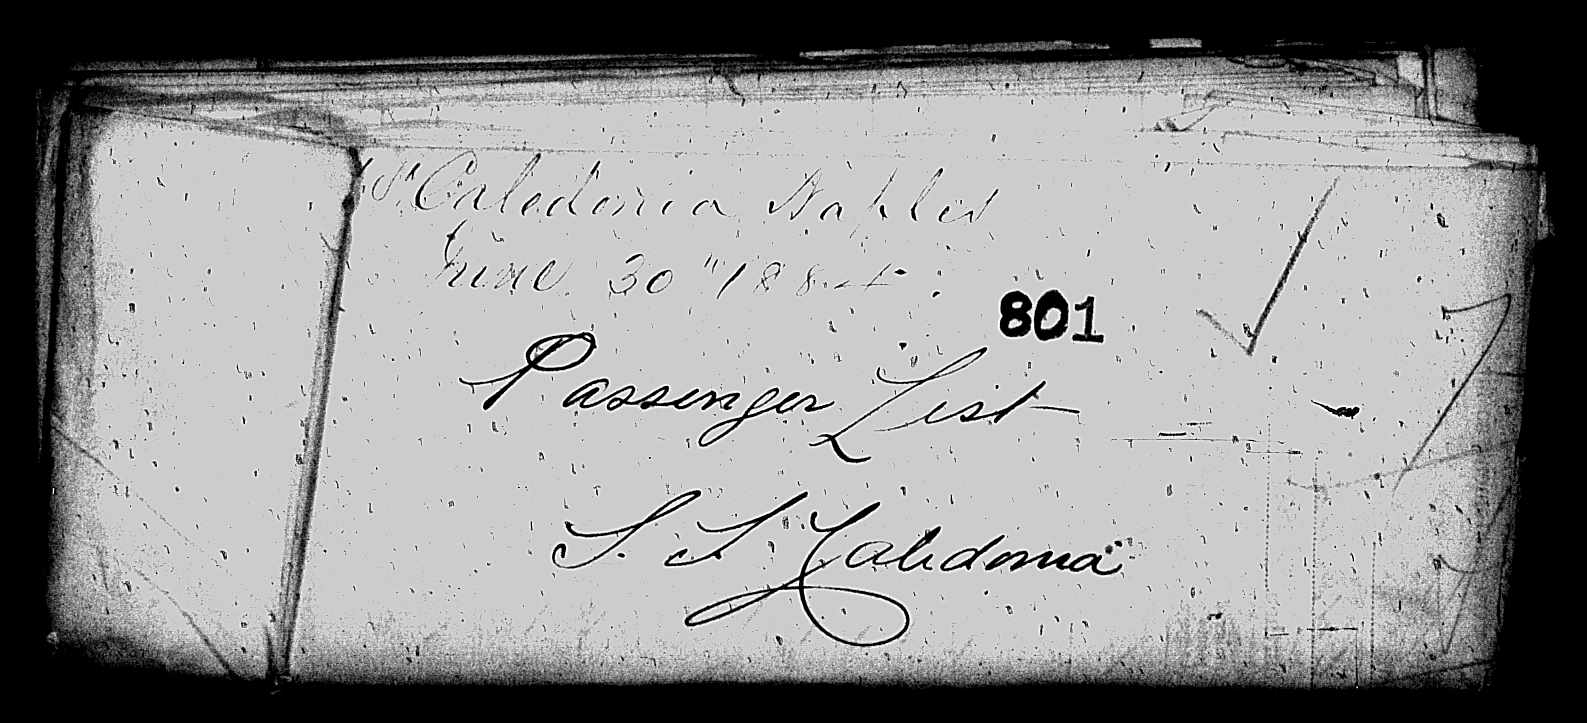 S. Caledonia Naples
June 30"
801
Passenger List
S. S. Caledonia